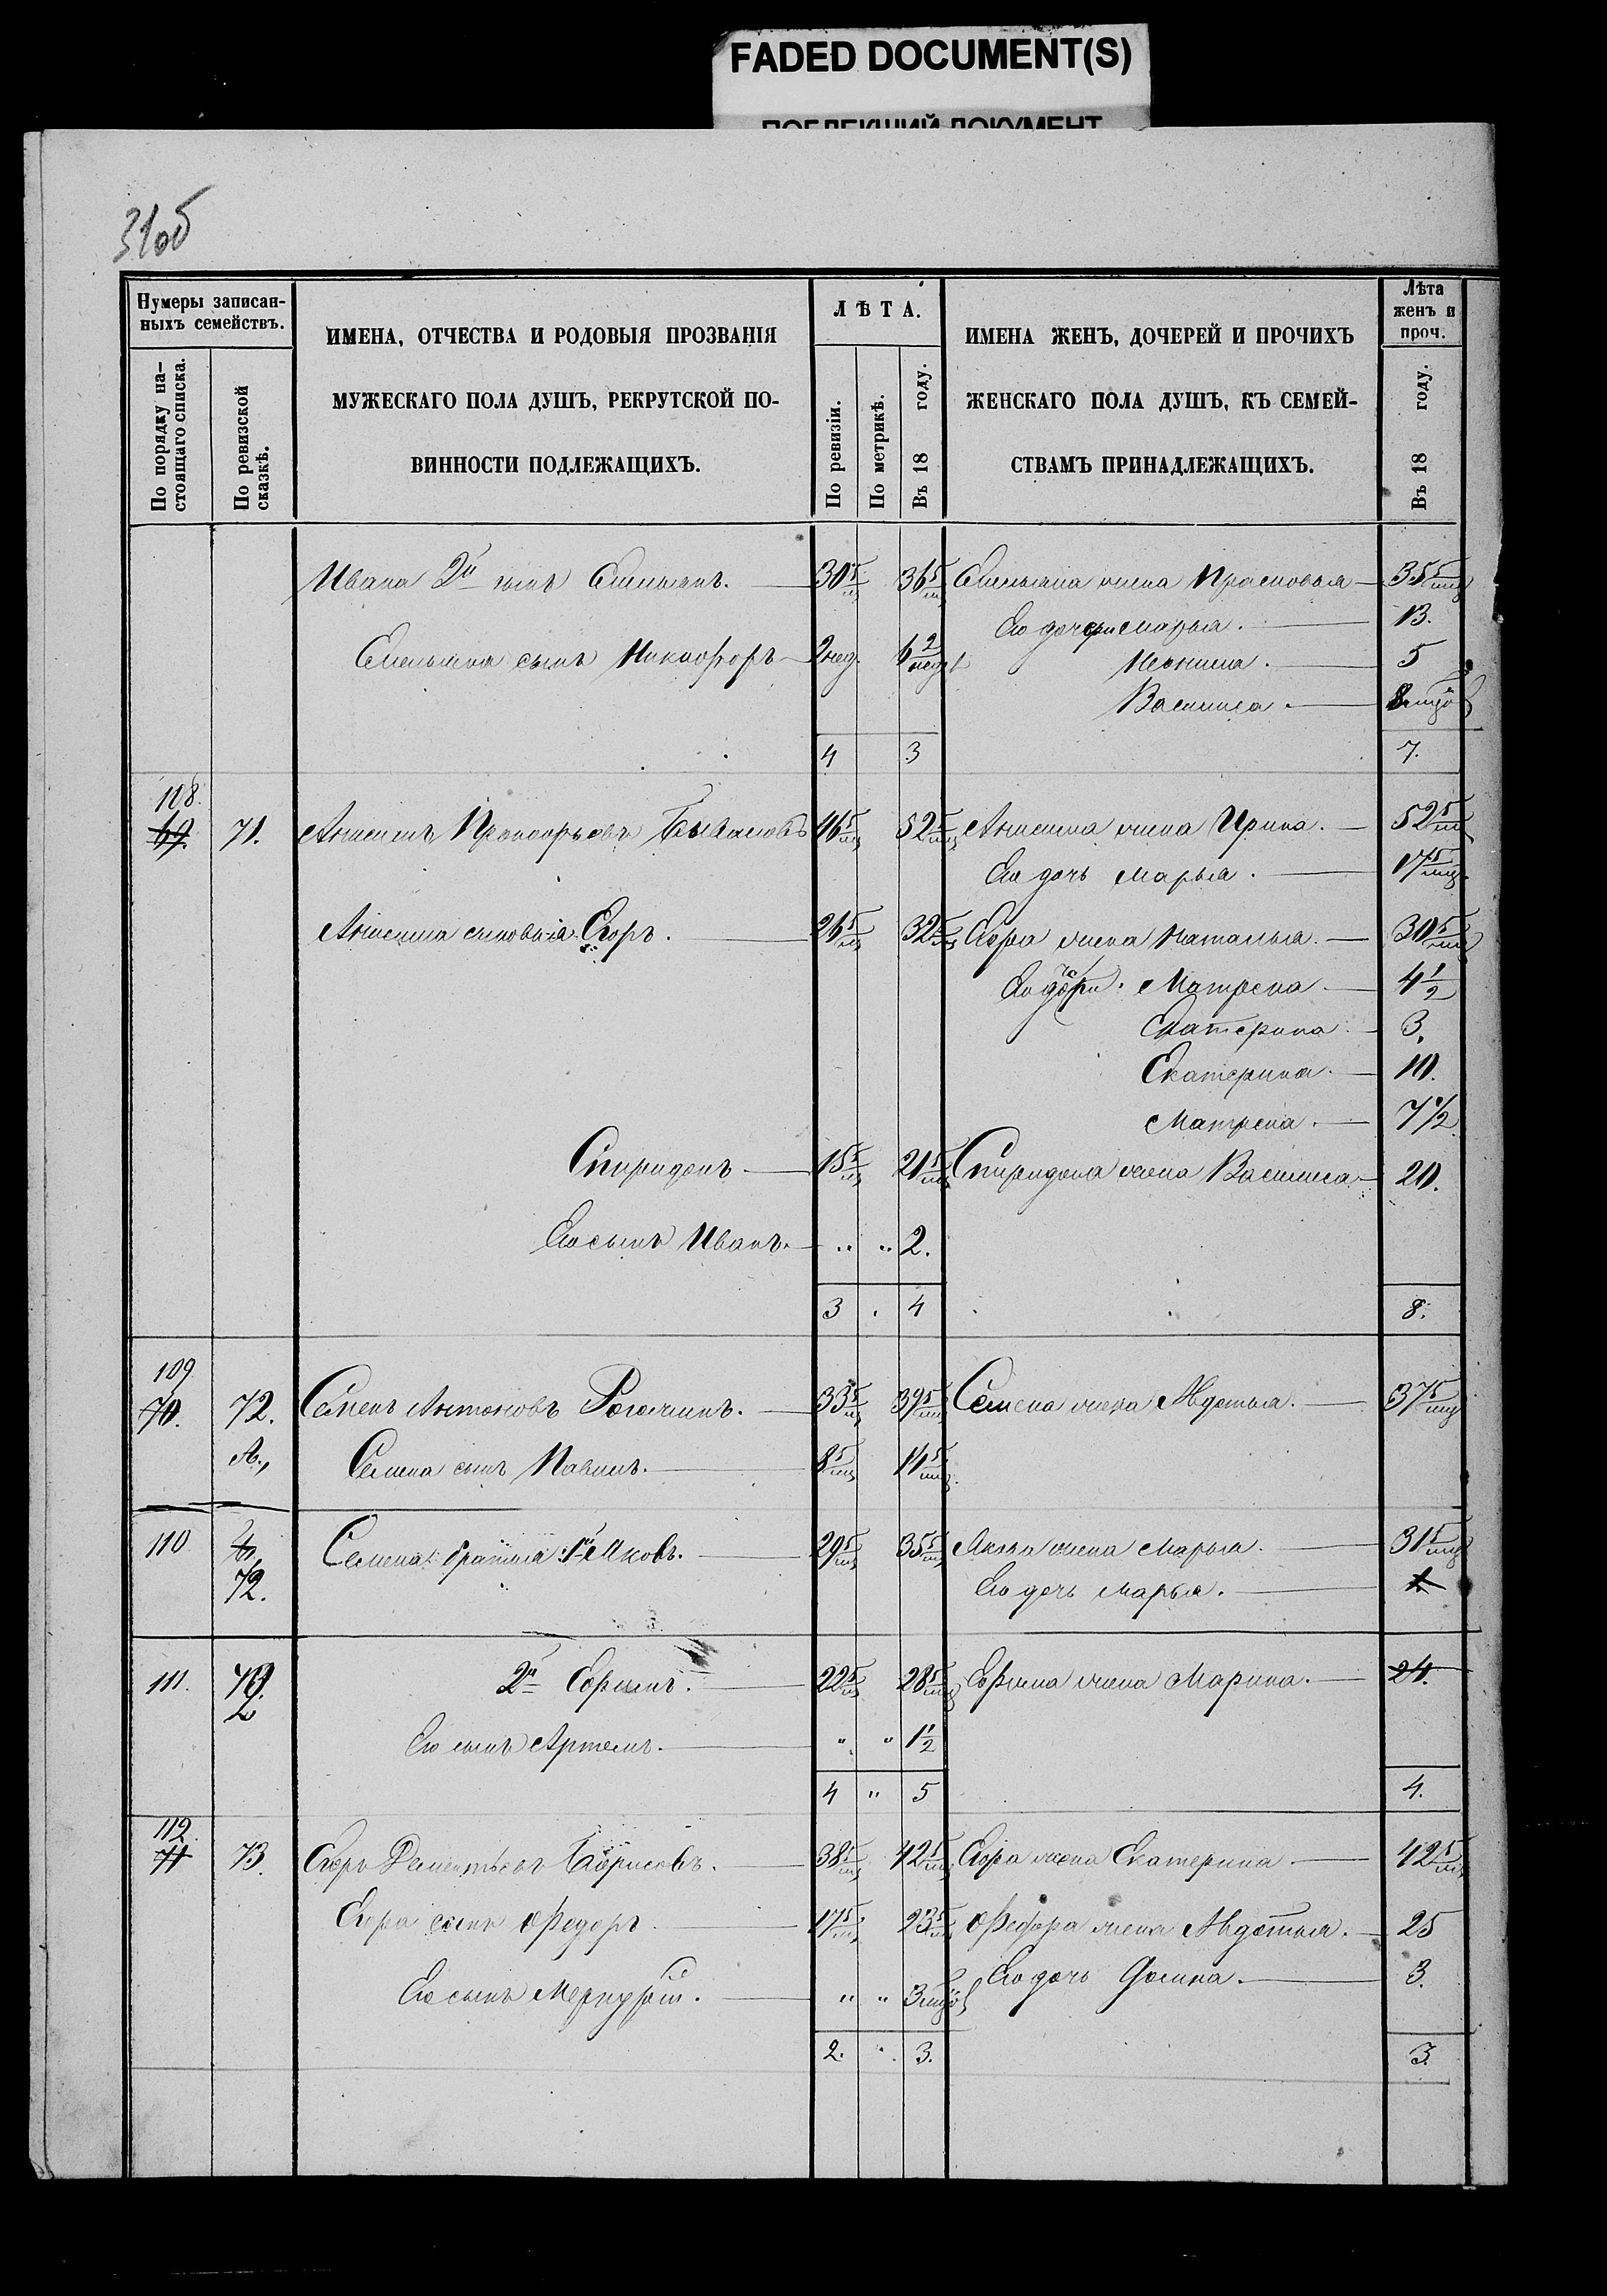 FADED DOCUMENT(S)
ПОБЛЕКШИЙ ДОКУМЕНТ
31об
Нумеры записан-
ныхъ семействъ.
По порядку на-
стоящаго списка.
По ревизской
сказкѣ.
ИМЕНА, ОТЧЕСТВА И РОДОВЫЯ ПРОЗВАНІЯ
МУЖЕСКАГО ПОЛА ДУШЪ, РЕКРУТСКОЙ ПО-
ВИННОСТИ ПОДЛЕЖАЩИХЪ.
ЛѢТА.
По ревизіи.
По метрикѣ.
Въ 18 году.
ИМЕНА ЖЕНЪ, ДОЧЕРЕЙ И ПРОЧИХЪ
ЖЕНСКАГО ПОЛА ДУШЪ, КЪ СЕМЕЙ-
СТВАМЪ ПРИНАДЛЕЖАЩИХЪ.
Лѣта
женъ и
проч.
Въ 18 году.
Ивана 2й сынъ Емельянъ. 30 5/мц 36 5/мц Емельяна жена Прасковья 35 5/мц
Его дочери Марья. 13.
Емельяна сынъ Никифоръ 2 нед. 6 2/недѣл 5
Василиса. 8 мцов
4 3 7.
118.
69. 71. Анисимъ Прокофьевъ 46 5/мц 52 5/мц Анисима жена Ирина. 52 5/мц
Его дочь Марья. 17 5/мц
Анисима сыновья Егоръ. 26 5/мц 32 5/мц Егора жена Наталья. 30 5/мц
Его дочери Матрена 4 1/2
Екатерина 3.
Екатерина. 10.
Матрена. 7 1/2
Спиридонъ 15 5/мц 21 5/мц Спиридона жена Василиса 20.
Его сынъ Иванъ. " " 2.
3 . 4 8.
109
70. 72. Семенъ Антоновъ Рогачинъ. 33 5/мц 39 5/мц Семена жена Авдотья. 37 5/мц
А., Семена сынъ Павелъ. 8 5/мц 14 5/мц
110 72. Семена братья 1й Яковъ. 29 5/мц 35 5/мц Якова жена Марья. 31 5/мц
Его дочь Марья. 1
111. 2й Ефимъ. 22 5/мц 28 5/мц Ефима жена Марина. 24.
Его сынъ Артемъ. " " 1 1/2
4 " 5 4.
112.
71 73. Егоръ Дементьевъ Борисовъ. 38 5/мц 42 5/мц Егора жена Екатерина 42 5/мц
Егора сынъ Федоръ 17 5/мц 23 5/мц Федора жена Авдотья. 25
Его дочь 3.
Его сынъ Меркурій. " " 3 мцов
2. . 3. 3.